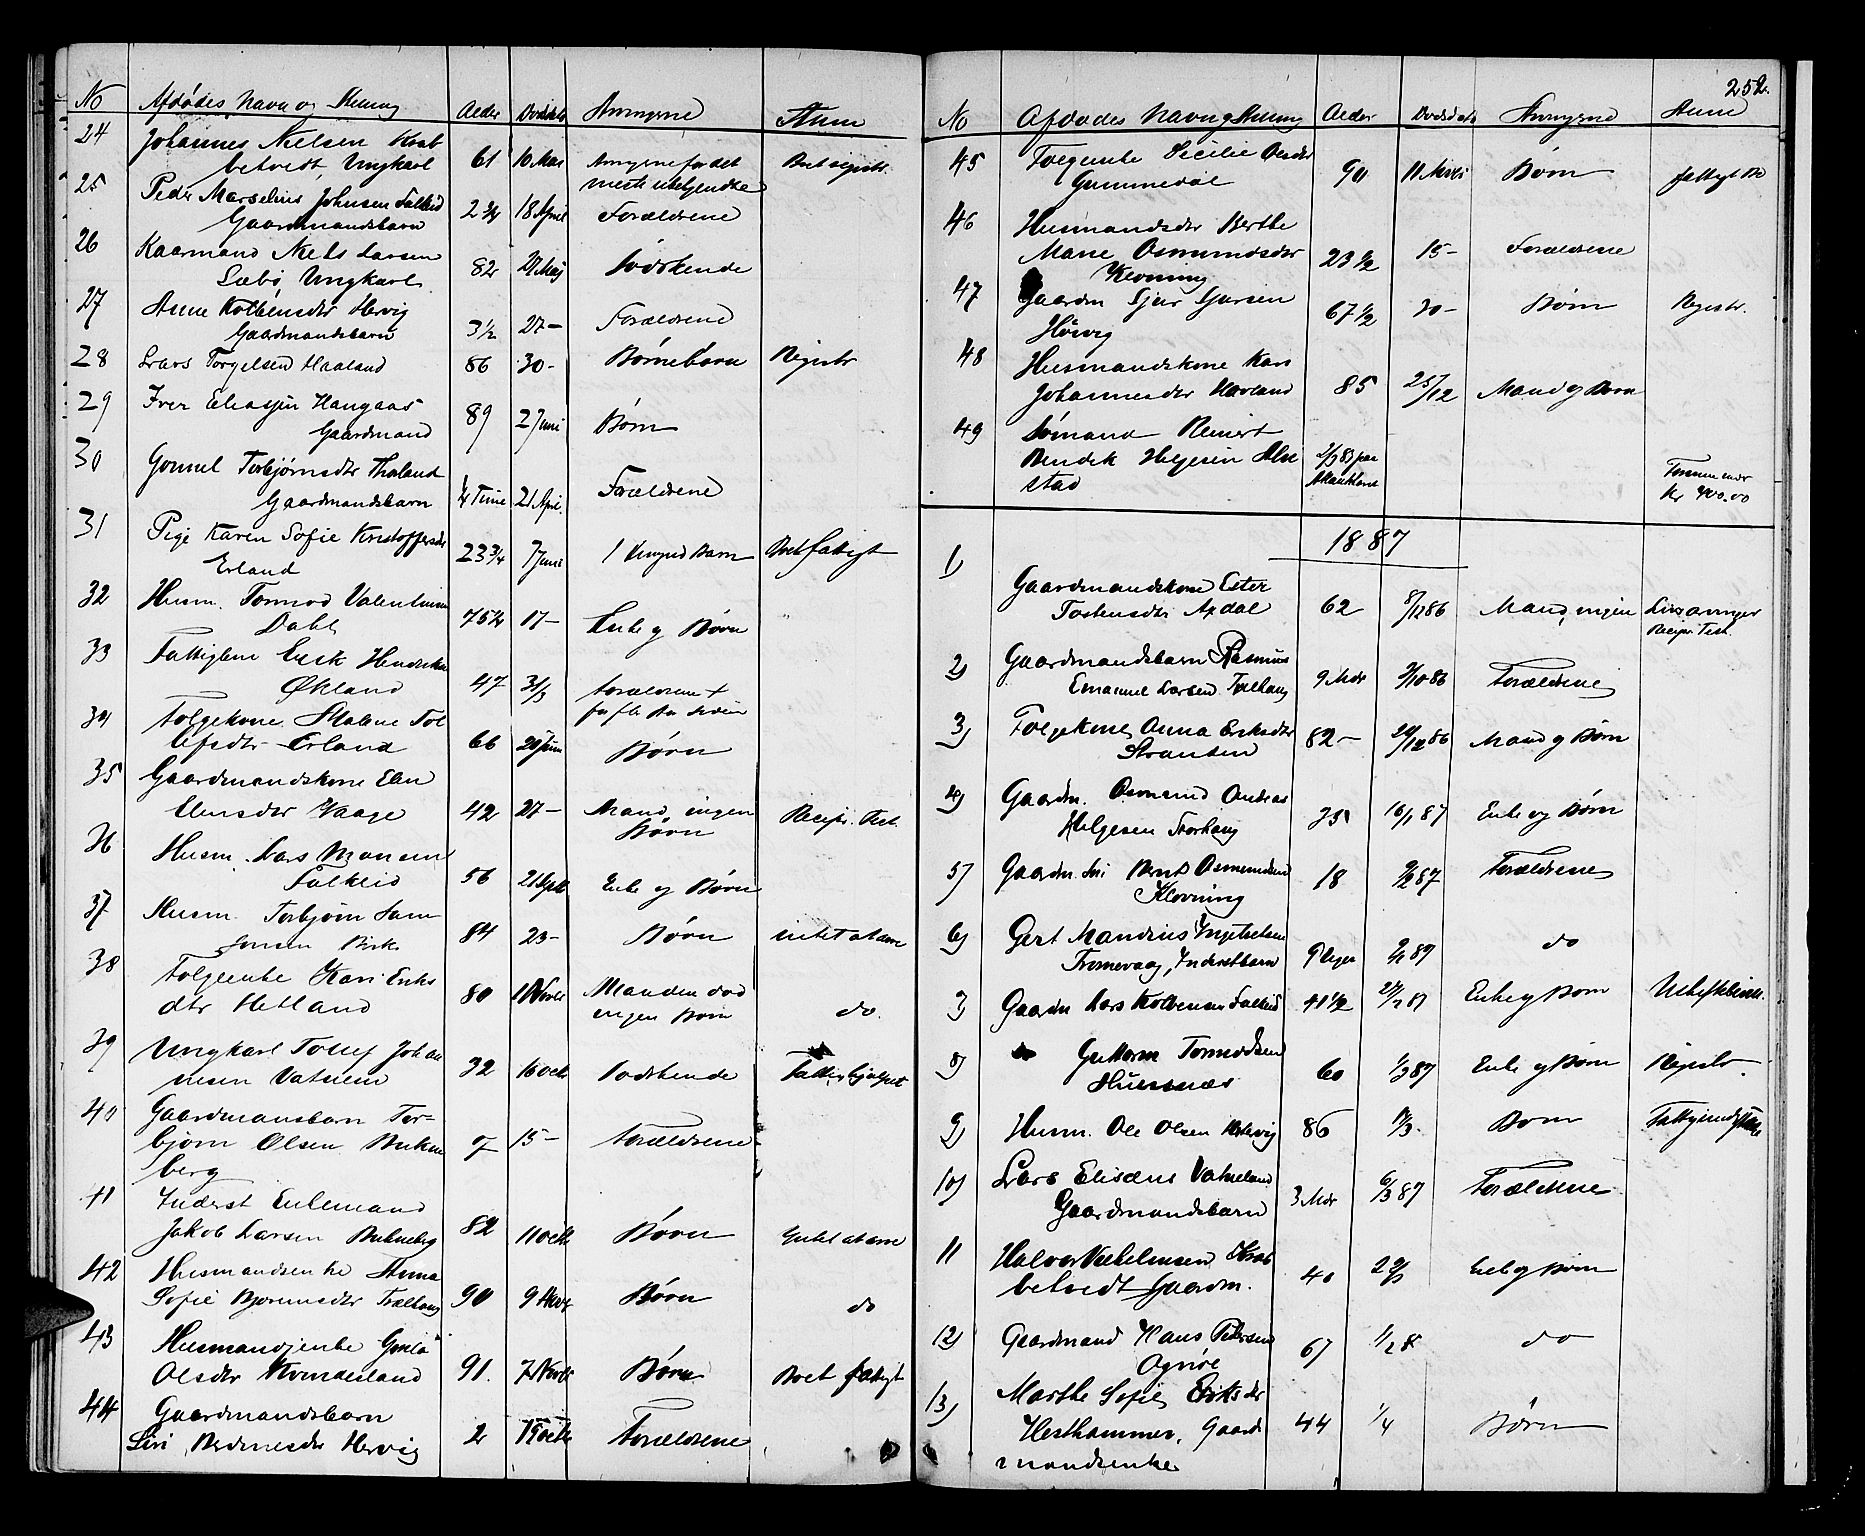 No Afdødes Navn og Stilling Alder Dødsdato Arvingerne Anm
24 Johannes Nielsen Krab
betvedt, Ungkarl 61 10 Mai Arvingerne for det
meste ubekjendte Boet registr.
25 Peder Marselius Johnsen Falkeid
Gaardmandsbarn 2 3/4 18 April Forældrene
26 Kaarmand Niels Larsen
Sæbø, Ungkarl 82 27 Maj Sødskende
27 Anne Kolbensdtr Hervig
Gaardmandsbarn 3 1/2 27 – Forældrene
28 Lars Torgelsen Haaland 86 30 – Børnebørn Registr
29 Iver Eliassen Haugaas
Gaardmand 89 2 Juni Børn
30 Gonnel Torbjørnsdtr Tholand
Gaardmandsbarn 1/4 Time 21 April. Forældrene
31 Pige Karen Sofie Kristoffersdtr
Erland 23 3/4 7 Juni 1 Umynd Barn Boet fattigt
32 Husm. Tormod Valentinsen
Dahle 75 1/4 17 – Enke og Børn
33 Fattiglem Erik Hendriksen
Økland 47 31/3 forældrene +
34 Folgekone Malene Tol
lefsdtr Erland 66 20 Juni Børn
35 Gaardmandskone Elen
Elensdtr Vaage 42 27 – Mand, ingen
Børn Recipr. Test.
36 Husm. Lars Monsen
Falkeid 56 21 Sept Enke og Børn
37 Husm. Torbjørn Sam
sonsen Birke 84 23 – Børn intet at arve
38 Folgeenke Kari Eriks
dtr Hetland 80 Manden død
ingen Børn do.
39 Ungkarl Tollef Johan
nesen Vatneim 32 16 Octb Sødskende
40 Gaardmansbarn Tor-
bjørn Olsen Bukne
berg 15 – Forældrene
41 Inderst Enkemand
Jakob Larsen Bukneberg 82 11 Octb Børn Intet at arve
42 Husmandsenke Anna
Sofie Bjørnsdtr Trælhaug 90 9 Børn do
43 Husmandsenke
Olsdtr Kvindesland 91. 7 Novb Børn Boet fattigt
44 Gaardmandsbarn
Siri Hervig 2 Octb Forældrene
252.
No Afdødes Navn og Stilling Alder Dødsdato Arvingerne Anm
45 Folgeenke Cecilie Olsdtr
Gunnedøl 90 11 Børn fattigt Bo
46 Husmandsdtr Berthe
Marie Osmundsdtr
Klovning 23 1/2 15 – Forældrene
47 Gaardm Sjur Sjursen
67 1/2 20 – Børn Registr.
48 Husmandskone Kari
Johannesdtr Havland 85 25/12 Mand og Børn
49 Sømand Reinert
Bendik Helgesen Alve
stad
Kr 400.00
1887
1) Gaardmandskone Ester
Tostensdtr Axdal 62 8/12 86 Mand, ingen Livsarvinger
Recipr Test.
2) Gaardmandsbarn Rasmus
Emanuel Larsen Trælhaug 9 Mdr 9/10 86 Forældrene
3) Folgekone Anna Eriksdtr
Stranden 82 – 20/12 86 Mand og Børn
4) Gaardm. Osmund Andreas
Helgesen Storhaug 35 16/1 87 Enke og Børn
5) Gaardm. Søn Bernt Osmundsen
Klovning 18 9/2 87 Forældrene
6) Gert Mandius Ingebretsen
Tromevaag, Inderstbarn 9 Uger 2/2 87 do
7) Gaardm Lars Kolbensen Falkeid 41 1/2 24/2 87 Enke og Børn
8) Guttorm Tormodsen
Husenæs 60 1/3 87 Enke og Børn Registr.
9) Husm. Ole Olsen Hetvig 86 Børn Fattigunderstøttelse
10) Lars Elisæus Vatneland
Gaardmandsbarn 3 Mdr 6/3 87 Forældrene
11 Halvor Vilhelmsen Krab
betvedt Gaardm. 40 Enke og Børn
12) Gaardmand Hans Pedersen
Ognøe 67 do
13) Marthe Sofie Eriksdtr
Hesthammer, Gaard
mandsenke 44 1/4 Børn